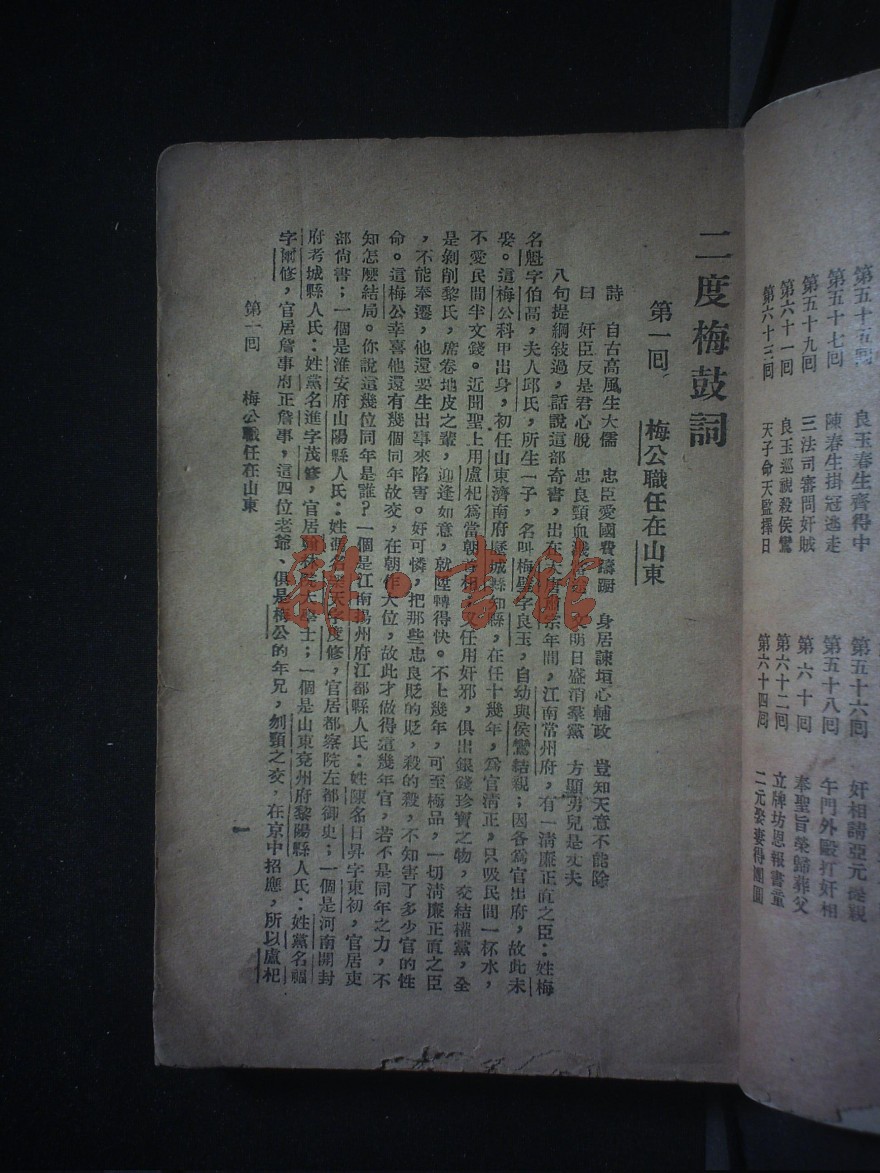 第五十五回　良玉春生齊得中　第五十六回　奸相請亞元提親
第五十七回　陳春生掛冠逃走　第五十八回　午門外毆打奸相
第五十九回　三法司審問奸賊　第六十回　奉聖旨榮歸葬父
第六十一回　良玉巡視殺侯鸞　第六十二回　立牌坊恩報書童
第六十三回　天子命天監擇日　第六十四回　二元娶妻得團圓
二度梅鼓詞
第一回、梅公職任在山東
詩　自古高風生大儒　忠臣愛國費躊躕　身居諫垣心輔政　豈知天意不能除
曰　奸臣反是君心脫　忠良頸血濺　文明日盛消羣黨　方顯男兒是丈夫
八句提綱敍過，話說這部奇書，出在大唐肅宗年間，江南常州府，有一淸廉正直之臣：姓梅
名魁字伯高，夫人邱氏，所生一子，名叫梅璧字良玉，自幼與侯鸞結親；因各爲官出府，故此未
娶。這梅公科甲出身，初任山東濟南府歷城縣知縣，在任十幾年，爲官淸正，只吸民間一杯水，
不愛民間半文錢。近聞聖上用盧杞爲當朝首相，又任用奸邪，俱出銀錢珍寶之物，交結權黨，全
是剝削黎氏，席卷地皮之輩，迎逢如意，就陞轉得快。不上幾年，可至極品，一切淸廉正直之臣
，不能奉遷，他還要生出事來陷害。好可憐，把那些忠良貶的貶，殺的殺，不知害了多少官的性
命。這梅公幸喜他還有幾個同年故交，在朝作大位，故此才做得這幾年官，若不是同年之力，不
知怎麽結局。你說這幾位同年是誰？一個是江南揚州府江都縣人氏：姓陳名日昇字東初，官居吏
部尙書；一個是淮安府山陽縣人氏：姓馮名樂天字度修，官居都察院左都御史；一個是河南開封
府考城縣人氏：姓黨名進字茂修，官居翰林院大學士；一個是山東兗州府黎陽縣人氏：姓黨名福
字爾修，官居詹事府正詹事，這四位老爺、俱是梅公的年兄，刎頸之交，在京中招應，所以盧杞
第一回　梅公職任在山東
一
雜·書館